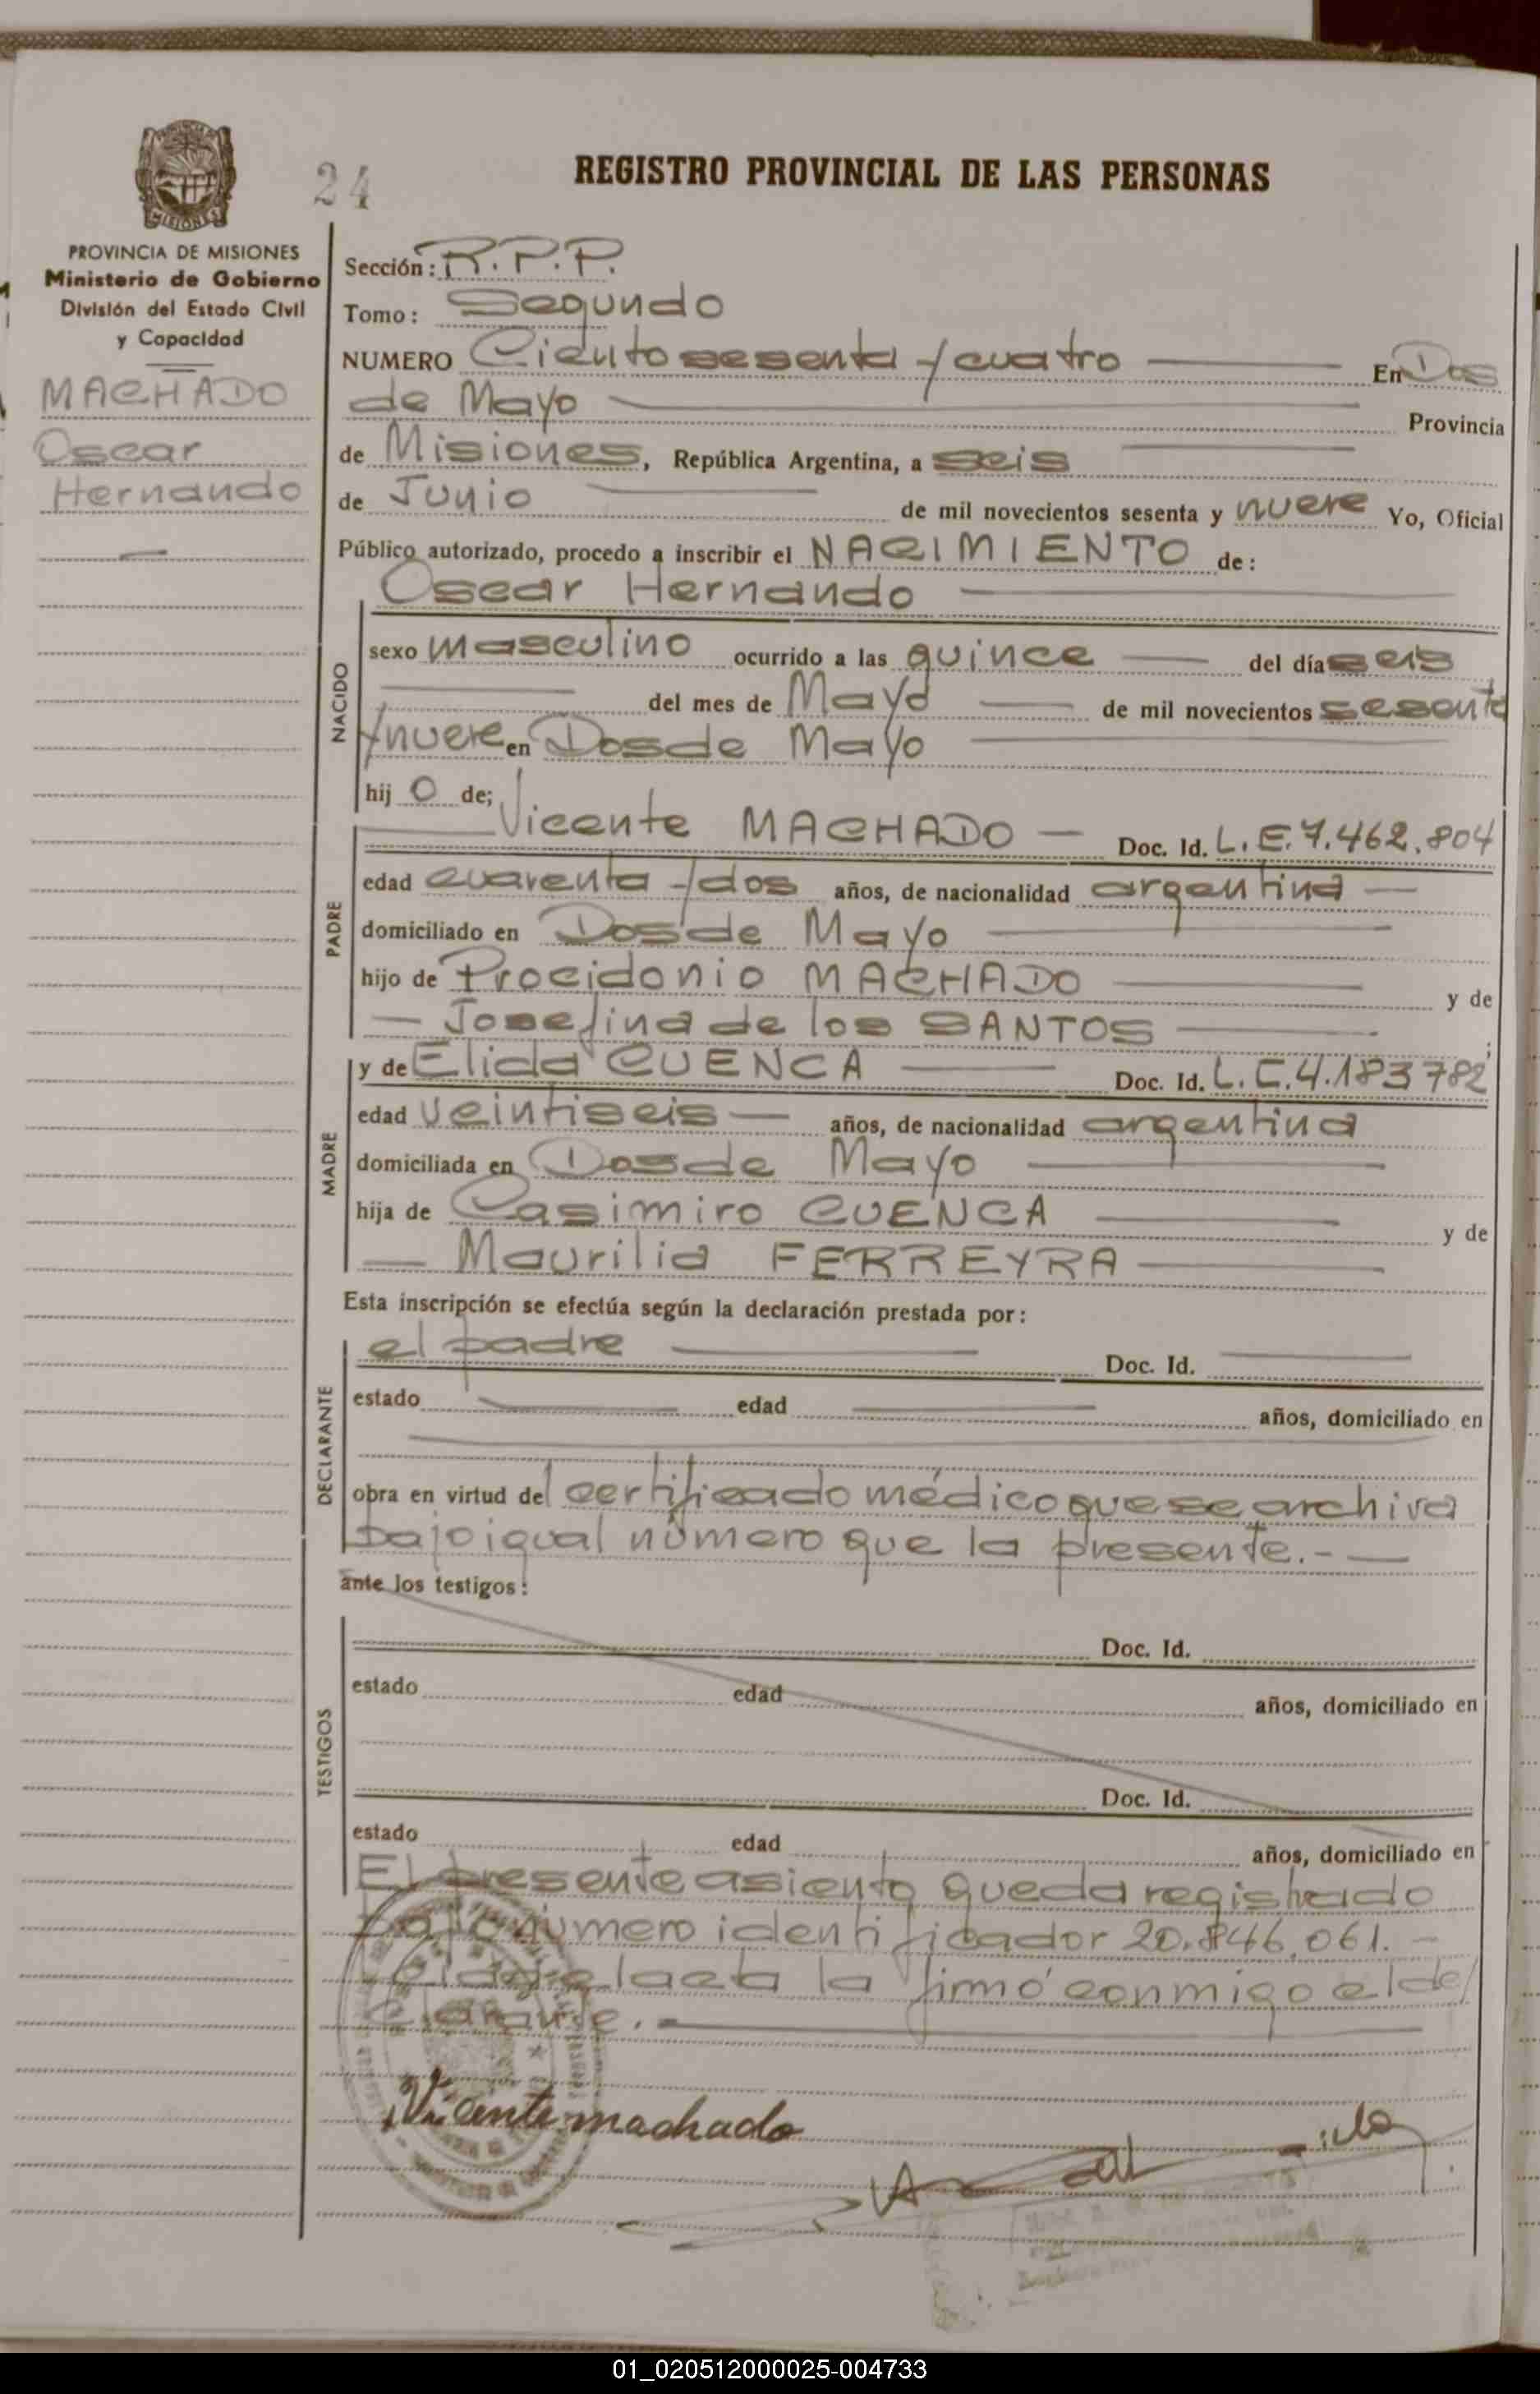 24
REGISTRO PROVINCIAL DE LAS PERSONAS
MISIONES
PROVINCIA DE MISIONES
Ministerio de Gobierno
División del Estado Civil
y Capacidad
MACHADO
Oscar
Hernando
Sección: R.P.P.
Tomo: Segundo
NUMERO Ciento sesenta y cuatro En Dos
de Mayo Provincia
de Misiones, República Argentina, a seis
de Junio de mil novecientos sesenta y nueve Yo, Oficial
Público autorizado, procedo a inscribir el NACIMIENTO de:
Oscar Hernando
NACIDO
sexo masculino ocurrido a las quince del día seis
del mes de Mayo de mil novecientos sesenta
y nueve en Dos de Mayo
hij o de;
PADRE
Vicente MACHADO — Doc. Id. L.E. 7.462.804
edad cuarenta y dos años, de nacionalidad argentina —
domiciliado en Dos de Mayo
hijo de Procidonio MACHADO y de
— Josefina de los SANTOS
MADRE
y de Elida CUENCA Doc. Id. L.C. 4.183782
edad veintiseis — años, de nacionalidad argentina
domiciliada en Dos de Mayo
hija de Casimiro CUENCA y de
— Maurilia FERREYRA
Esta inscripción se efectúa según la declaración prestada por:
DECLARANTE
el padre Doc. Id.
estado edad años, domiciliado en
obra en virtud del certificado médico que se archiva
bajo igual número que la presente.-
ante los testigos:
TESTIGOS
Doc. Id.
estado edad años, domiciliado en
Doc. Id.
estado edad años, domiciliado en
El presente asiento queda registrado
bajo número identificador 20.846.061.-
Leida el acta la firmó conmigo el de
clarante.
Vicente machado
01_020512000025-004733